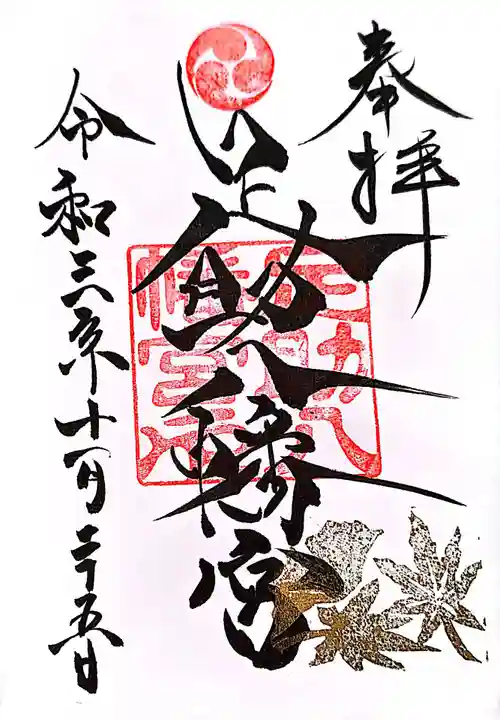 奉拝
足助八幡宮
令和三年十一月二十五日